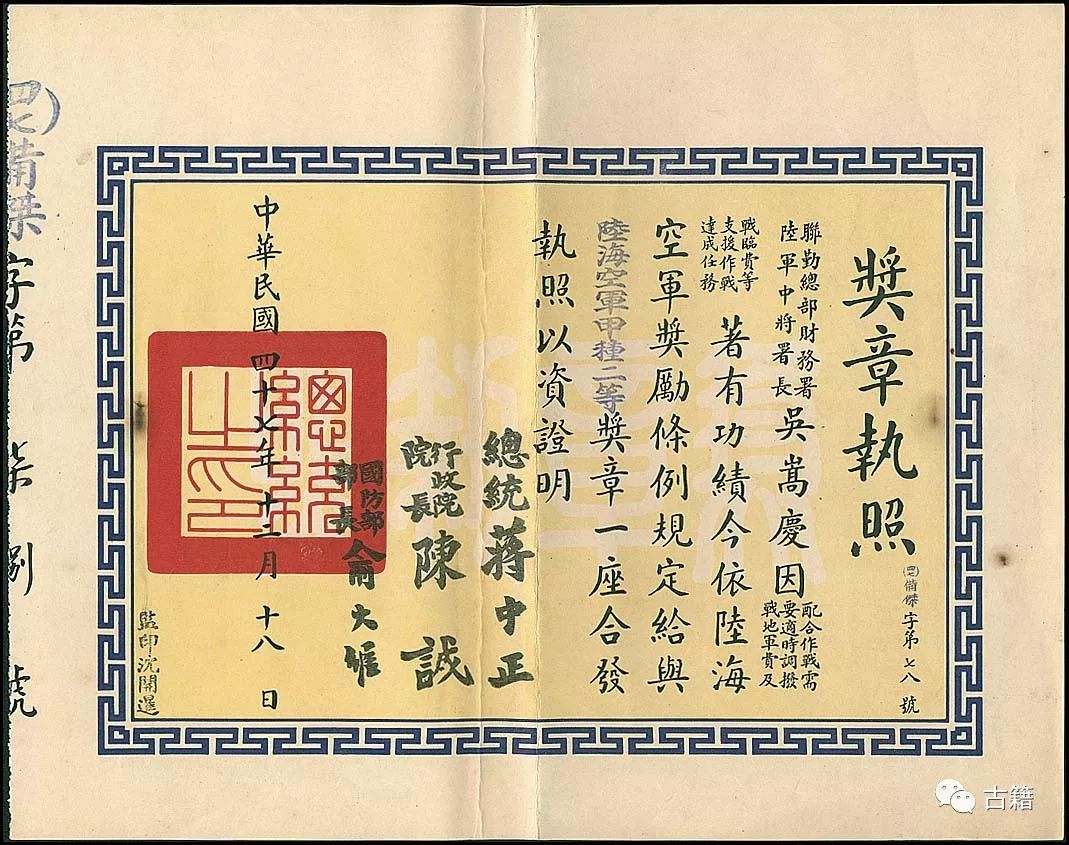 獎章執照
(四七)備傑字第七八號
聯勤總部財務署
陸軍中將署長
吳嵩慶因
配合作戰需
要適時調撥
戰地軍費及
戰臨賞等
支援作戰
達成任務
著有功績今依陸海
空軍獎勵條例規定給與
陸海空軍甲種二等獎章一座合發
執照以資證明
總統蔣中正
行政院
院長
陳誠
國防部
部長
俞大維
中華民國四十七年十二月十八日
監印沈開暹
總統之印
(四七)備傑字第柒捌號
古籍